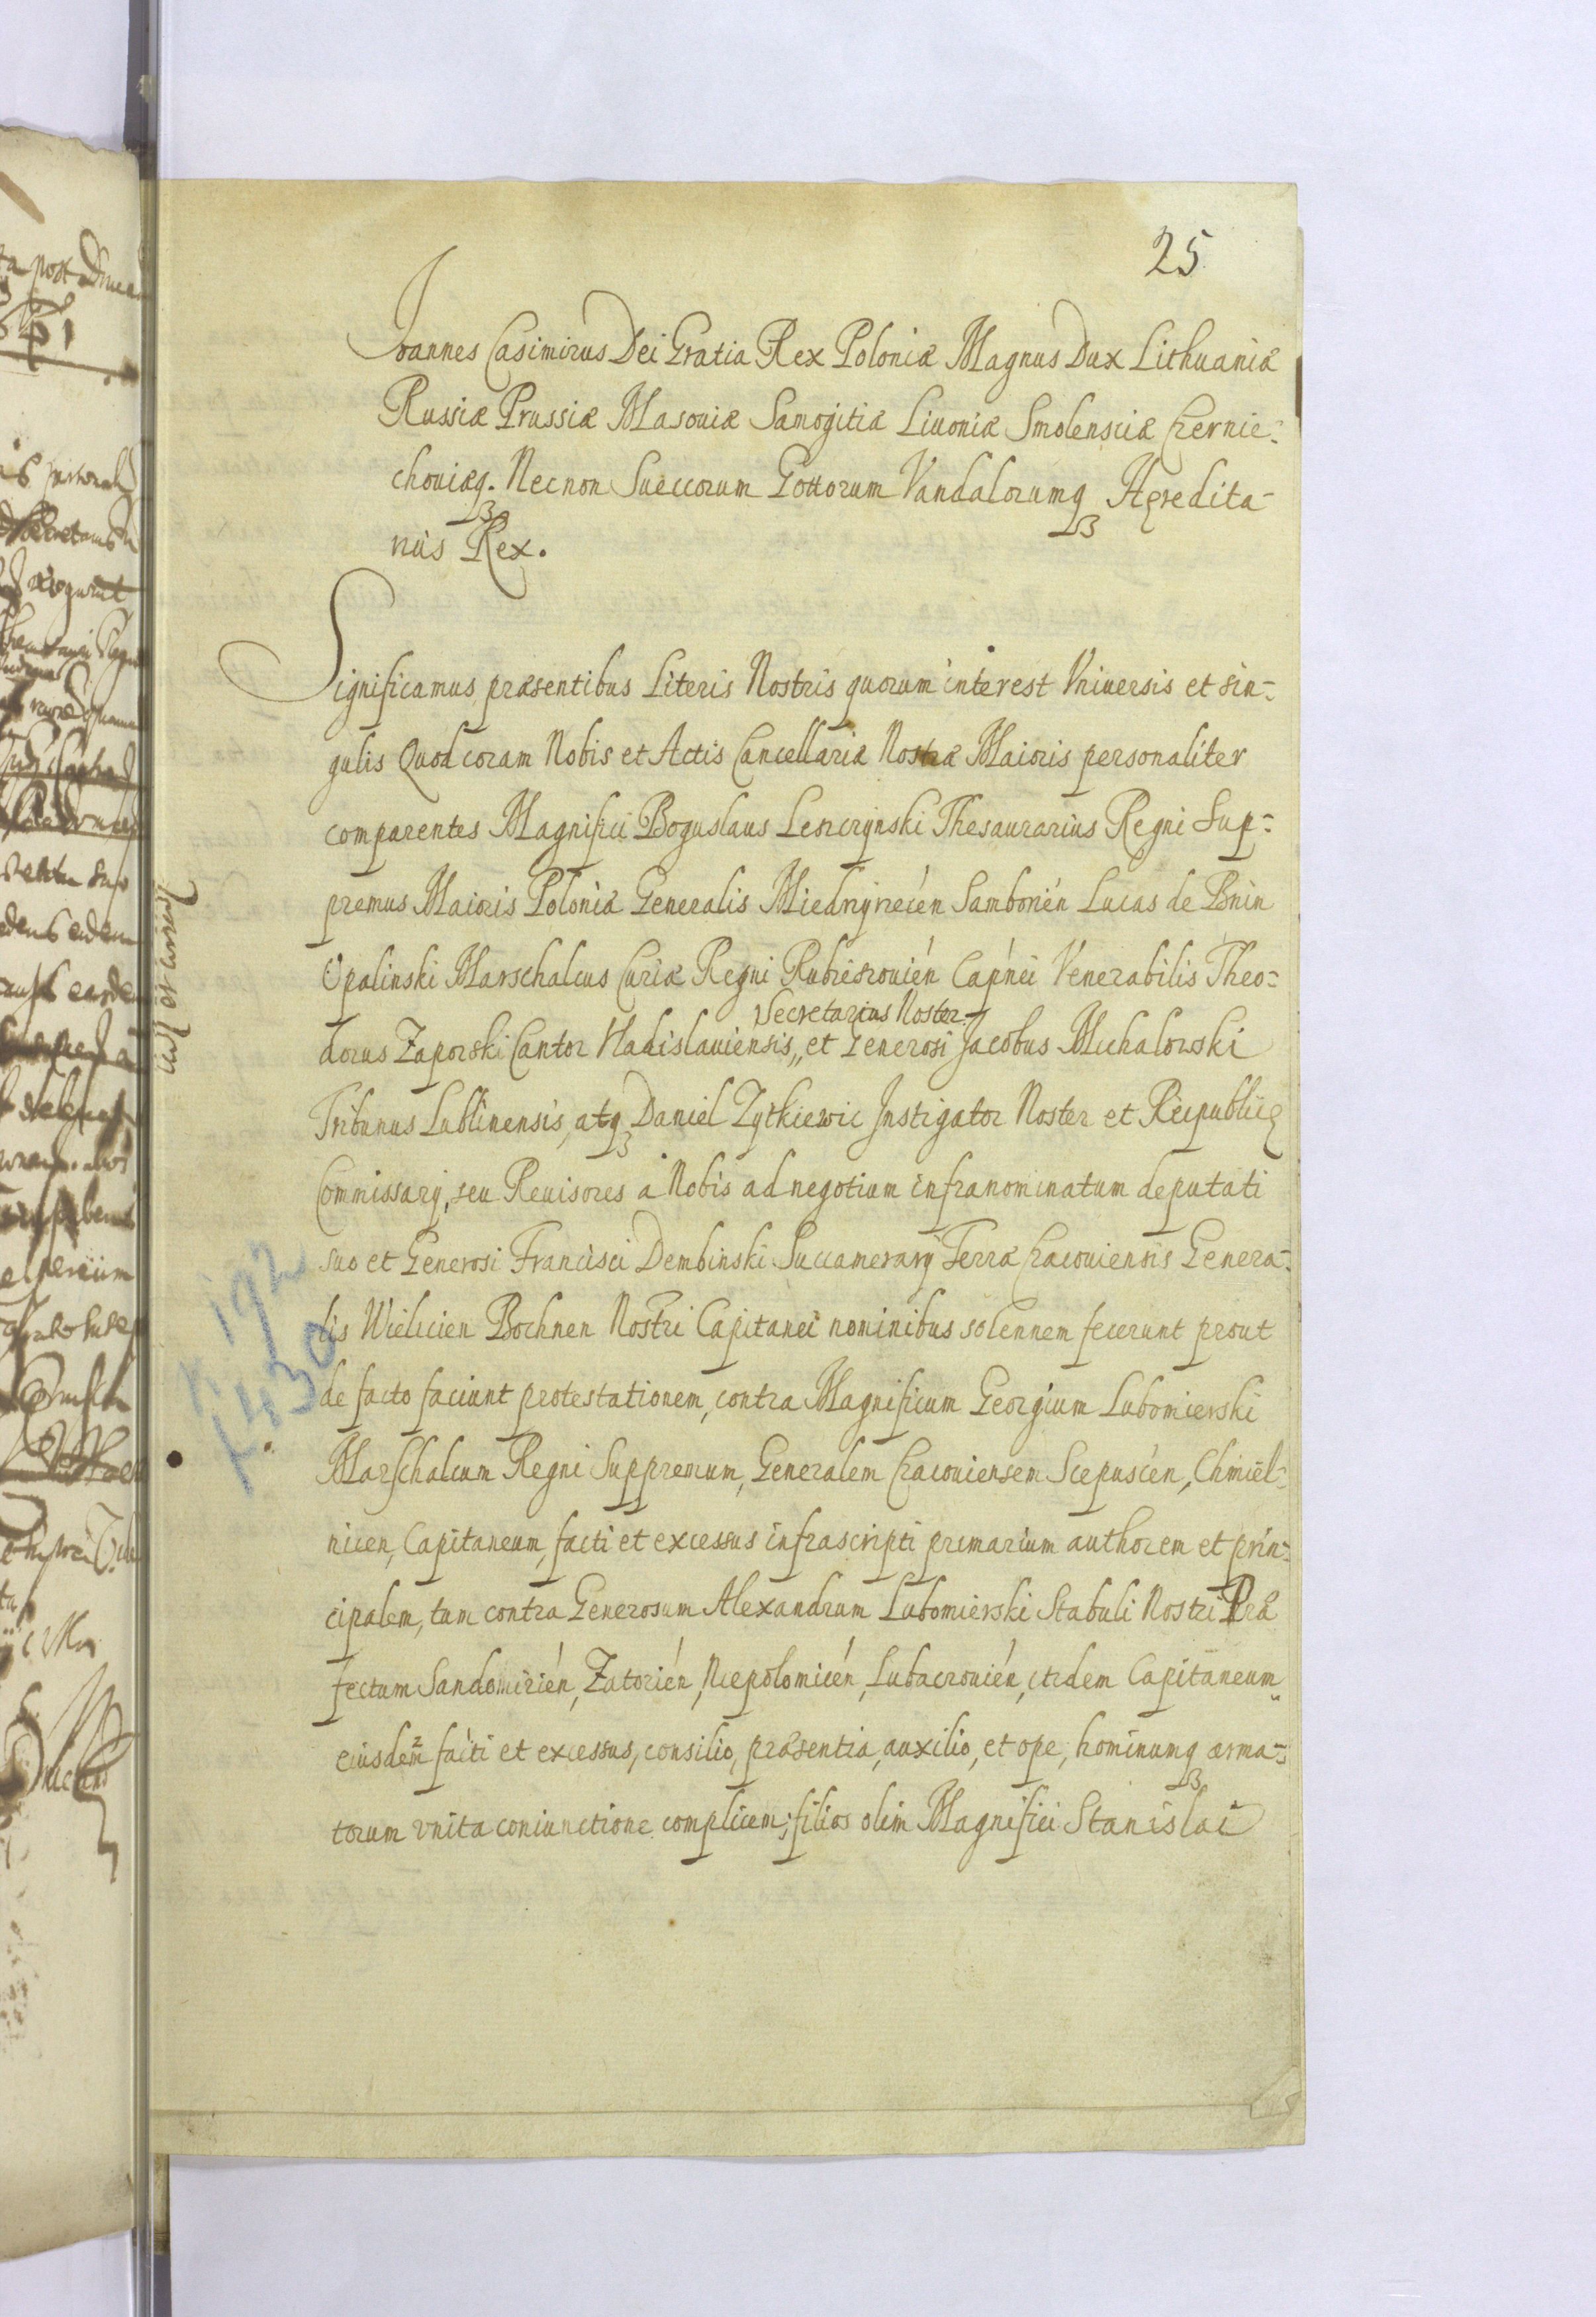 25
Joannes Casimirus Dei Gratia Rex Poloniæ Magnus Dux Lithuaniæ
Russiæ Prussiæ Masouiæ Samogitiæ Liuoniæ Smolensciæ Czernie-
chouiæq. Necnon Sueccorum Gottorum Vandalorumq Hæredita-
rius Rex.
Significamus præsentibus Literis Nostris quorum interest Vniuersis et sin-
gulis Quod coram Nobis et Actis Cancellariæ Nostræ Maioris personaliter
comparentes Magnifici Boguslaus Leszczynski Thesaurarius Regni Sup-
premus Maioris Poloniæ Generalis Miedzyrzecén Samborién Lucas de Bnin
Opalinski Marschalcus Curiæ Regni Rubieszouién Cap'nei Venerabilis Theo-
Secretarius Noster
dorus Zaporski Cantor Vladislauiensis,, et Generosi Jacobus Michalowski
Tribunus Lublinensis, atq Daniel Zytkiewic Jnstigator Noster et Reipublicę
Commissarij, seu Reuisores à Nobis ad negotium infranominatum deputati
suo et Generosi Francisci Dembinski Succamerarij Terræ Cracouiensis Genera-
lis Wielicien Bochnen Nostri Capitanei nominibus solennem fecerunt prout
de facto faciunt protestationem, contra Magnificum Georgium Lubomierski
Marschalcum Regni Suppremum, Generalem Cracouiensem Scepusién, Chmiel-
nicen, Capitaneum, facti et excessus infrascripti primarium authorem et prin-
cipalem, tum contra Generosum Alexandrum Lubomierski Stabuli Nostri Præ
fectum Sandomirién, Zatorién, Niepolomicén, Lubaczouién, itidem Capitaneum
eiusdem facti et excessus, consilio, præsentia, auxilio, et ope, hominumq arma-
torum vnita coniunctione complicem; filios olim Magnifici Stanislai